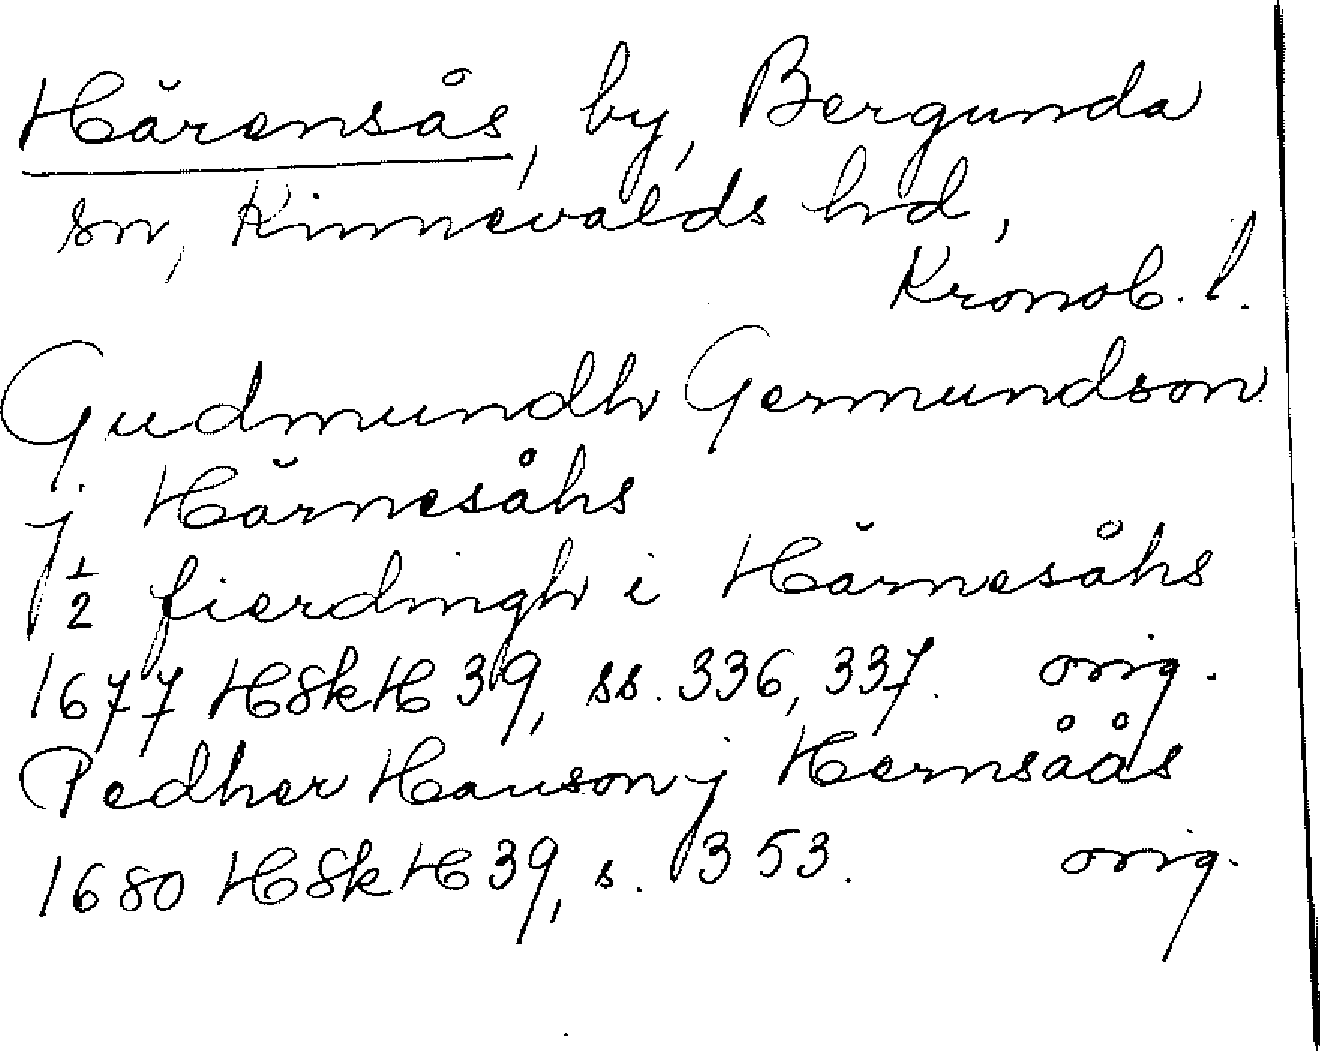 Härensås, by, Bergunda
sn, Kinnevalds hd,
Kronob. l.
Gudmundh Germundson
j Härnesåhs
1/2 fierdingh i Härnesåhs
1677 HSkH 39, ss. 336, 337. orig.
Pedher Hauson j Hernsåås
1680 HSkH 39, s. 353. orig.